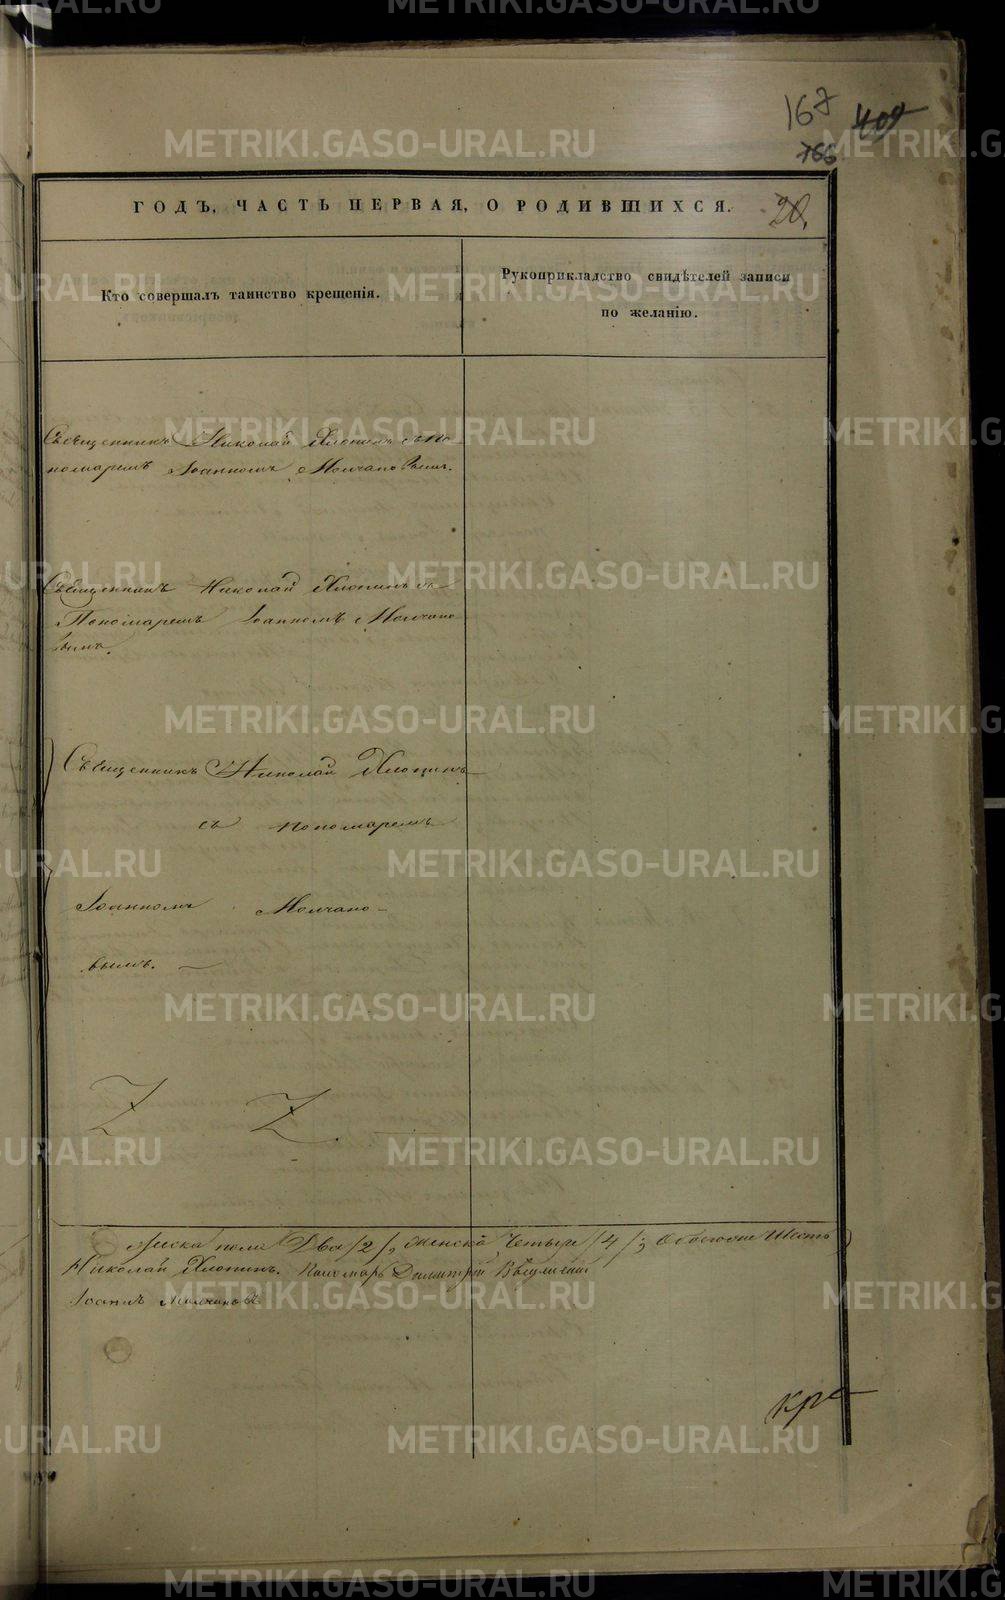 167 409
766
ГОДЪ, ЧАСТЬ ПЕРВАЯ, О РОДИВШИХСЯ. 20,
Кто совершалъ таинство крещенія.
Рукоприкладство свидѣтелей записи
по желанію.
Священникъ Николай Хлопинъ съ По-
номаремъ Іоанномъ Молчановымъ.
Священникъ Николай Хлопинъ съ
Пономаремъ Іоанномъ Молчано
вымъ.
Священникъ Николай Хлопинъ
съ пономаремъ
Іоанномъ Молчано-
вымъ.
Мужска пола Два /2/, женска Четыре /4/; Обоего Шесть
Николай Хлопинъ. Пономарь Димитрій
Іоаннъ Молчановъ
METRIKI.GASO-URAL.RU